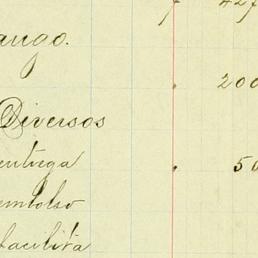 ango.
200
Diversos
entrega
50
embolso
facilita